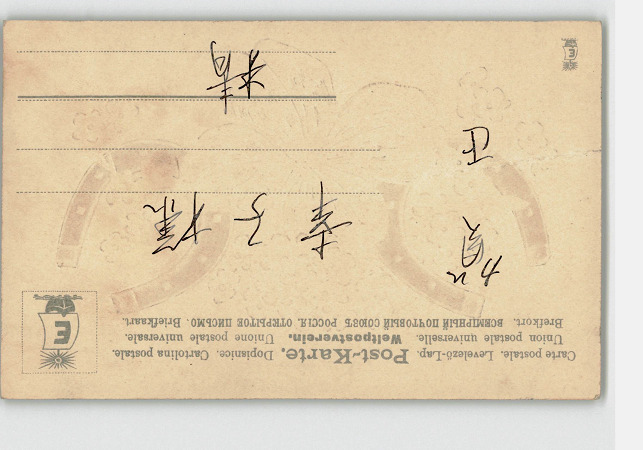 Carte postale. Levelező-Lap. Post-Karte. Dopisnice. Cartolina postale.
Union postale universelle. Weltpostverein. Unione postale universale.
Brefkort. ВСЕМІРНЫЙ ПОЧТОВЫЙ СОЮЗЪ. РОССІЯ. ОТКРЫТОЕ ПИСЬМО. Briefkaart.
E
賀正
幸子様
E